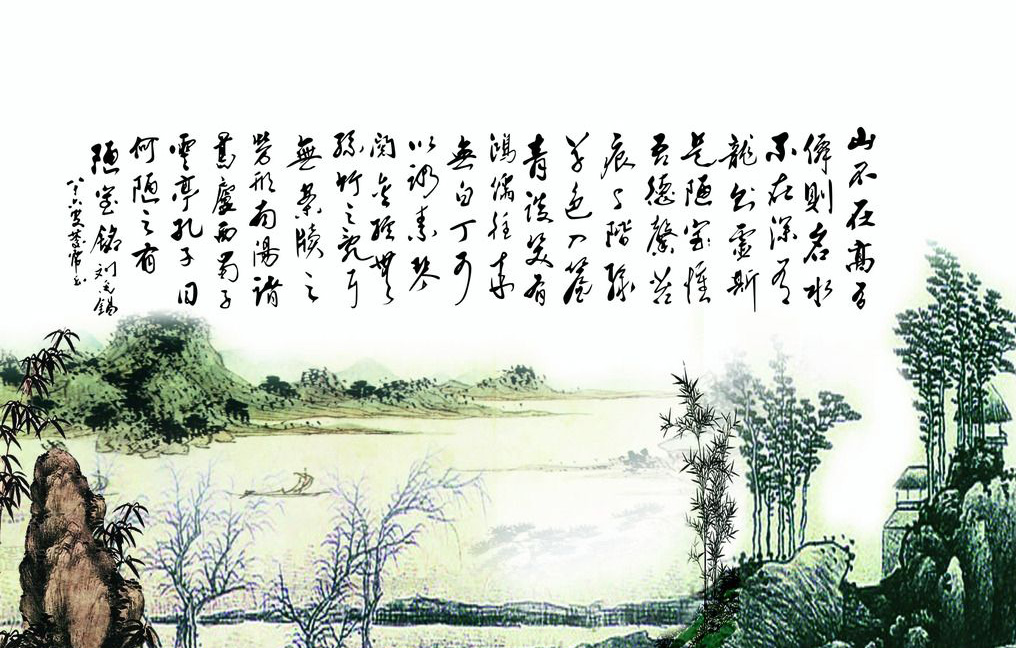 山不在高有
僊則名水
不在深有
龍則靈斯
是陋室惟
吾德馨苔
痕上階綠
草色入簾
青談笑有
鴻儒往來
無白丁可
以調素琴
閱金經無
絲竹之亂耳
無案牘之
勞形南陽諸
葛廬西蜀子
雲亭孔子曰
何陋之有
陋室銘刘禹錫